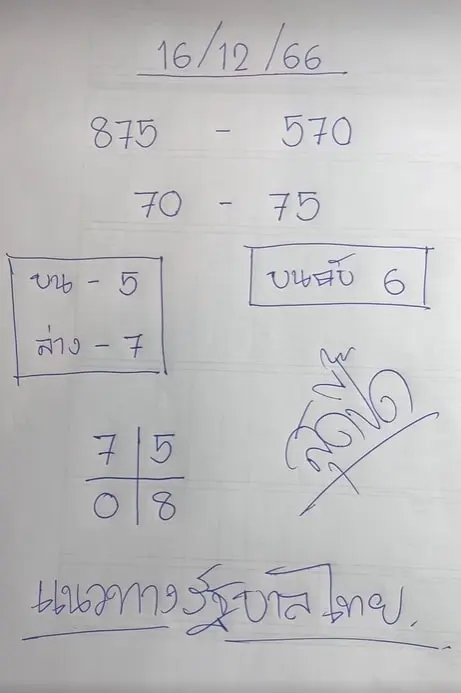 16/12/66
875 - 570
70 - 75
บน - 5
ล่าง - 7
บนดับ 6
7 5
0 8
แนวทางรัฐบาลไทย.